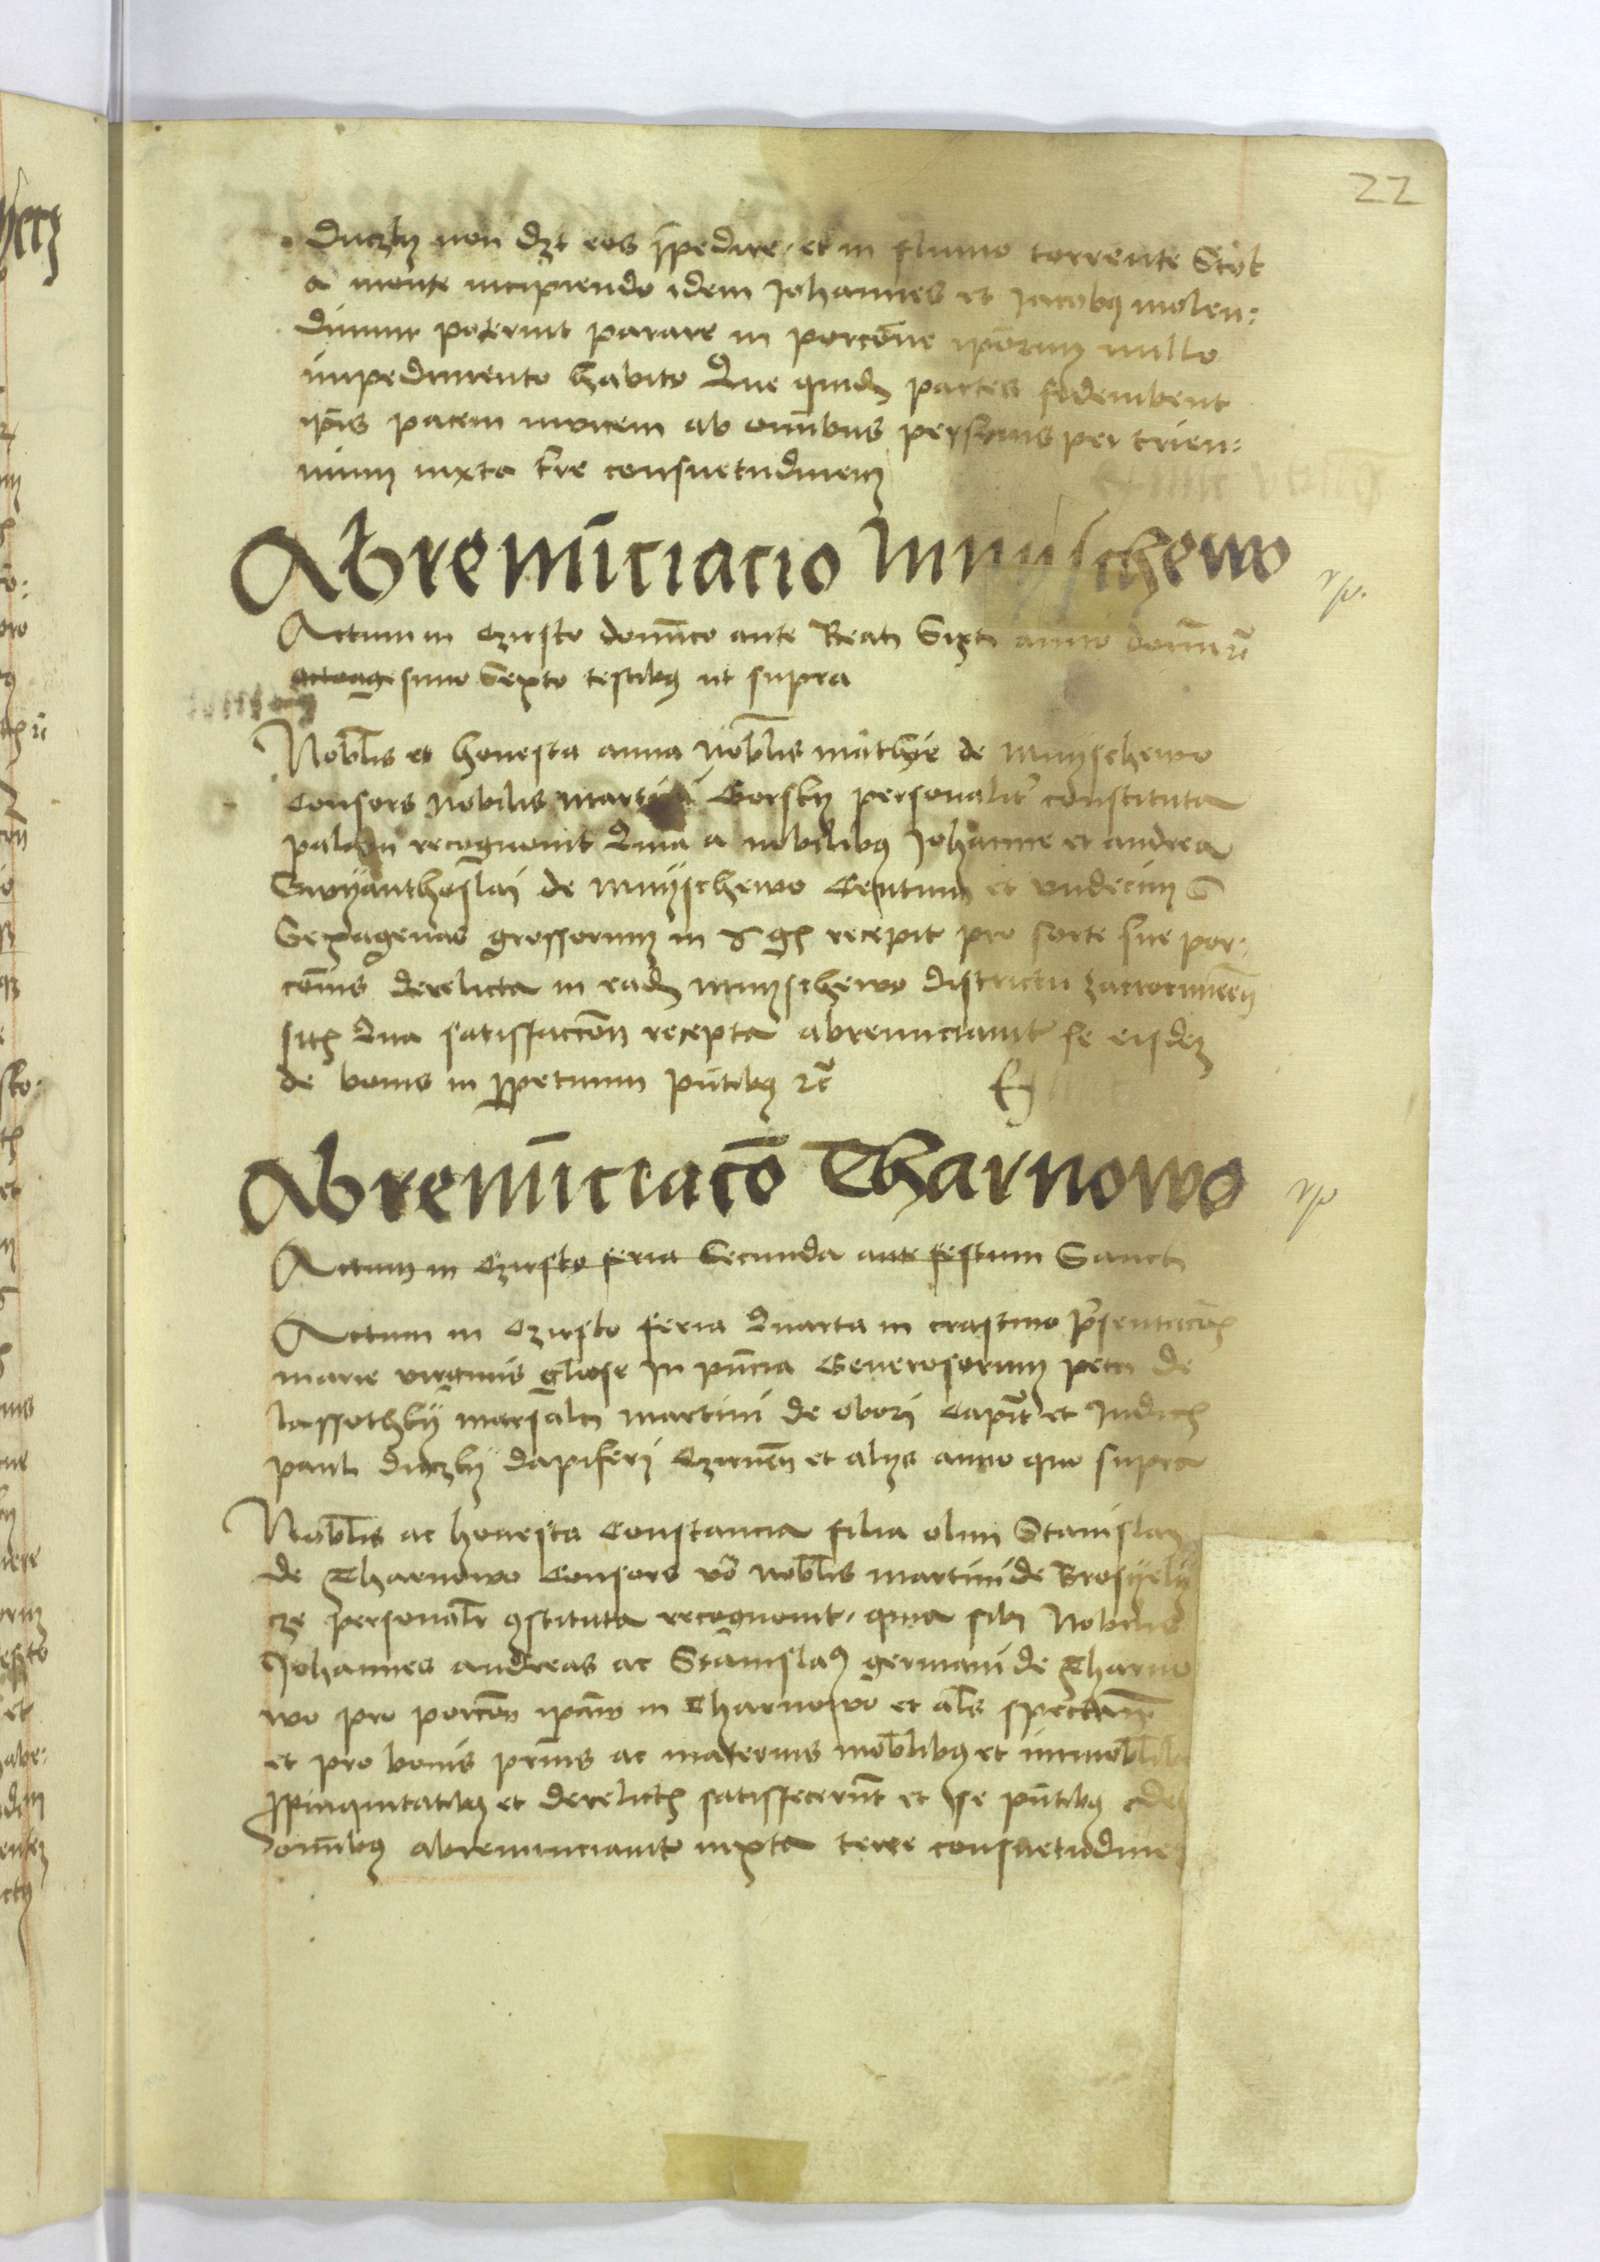 22
Duczky non dzt eos īpedire et in flumo torrente Stok
a monte incipiendo idem Johannes et Jacobꝰ molen:
dinum poterint parare in porcōne ipōrum nullo
impedimento habito Que quidē partes fideiubent
ip̄is pacem invicem ab om̄ibus personis per trien:
nium iuxta tr̄e consuetudinem
Abrenūciacio Mnyschewo
Actum in Czirsko domīco ante Beati Sixti anno domī ꝛc̄
octoagesimo Sexto testibꝰ ut supra
Nobl̄is et honesta anna nobl̄is mathie de Mnyschewo
Consors nobilis Martini Gorsky personalit̄ constituta
palam recognovit Quia a nobilibꝰ Johanne et andrea
Swyanthoslai de Mnyschewo Centum et undecim
Sexagenas grossorum in gͦ recepit pro sorte sue por:
cōnis derelicta in eadē Mnyschewo districtu
sitͥ Qua satisfaccōne recepta abrenunciavit se eisdez
de bonis in ꝑpetuum pn̄tibꝰ ꝛc̄
Abrenūciacō Tharnowo
Actum in Czirsko feria Secunda ante festum Sancti
Actum in Czirsko feria Quarta in crastino p̄sentacōis
marie virginis gl̄iose In pn̄cia Generosorum petri de
lassothky marsalci martini de obori Capit̄ et Judicͥ
pauli duczky dapiferi Czirneñ et alys anno quo supra
Nobl̄is ac honesta Constancia filia olim Stanislai
de Tharnowo Consors v̄o nobl̄is martini de Brosyely
cze personal̄r ꝯstituta recognovit quia sibi Nobilis
Johannes andreas ac Stanislaꝰ germani de Tharno
wo pro porcōne ip̄am in Tharnowo et al̄s spectan̄
et pro bonis pr̄nis ac maternis mobl̄ibꝰ et immobl̄ib
ꝓpinquitatibꝰ et derelictͥ satisfecerūt et se pn̄tibꝰ de
om̄ibꝰ abrenunciavit iuxta terre consuetudinez